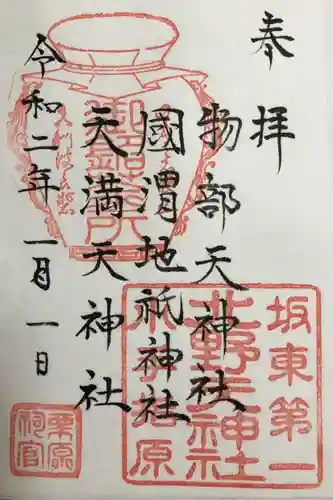 奉拝
物部天神社
國渭地祇神社
天満天神社
令和二年一月一日
坂東第一
北野天神社